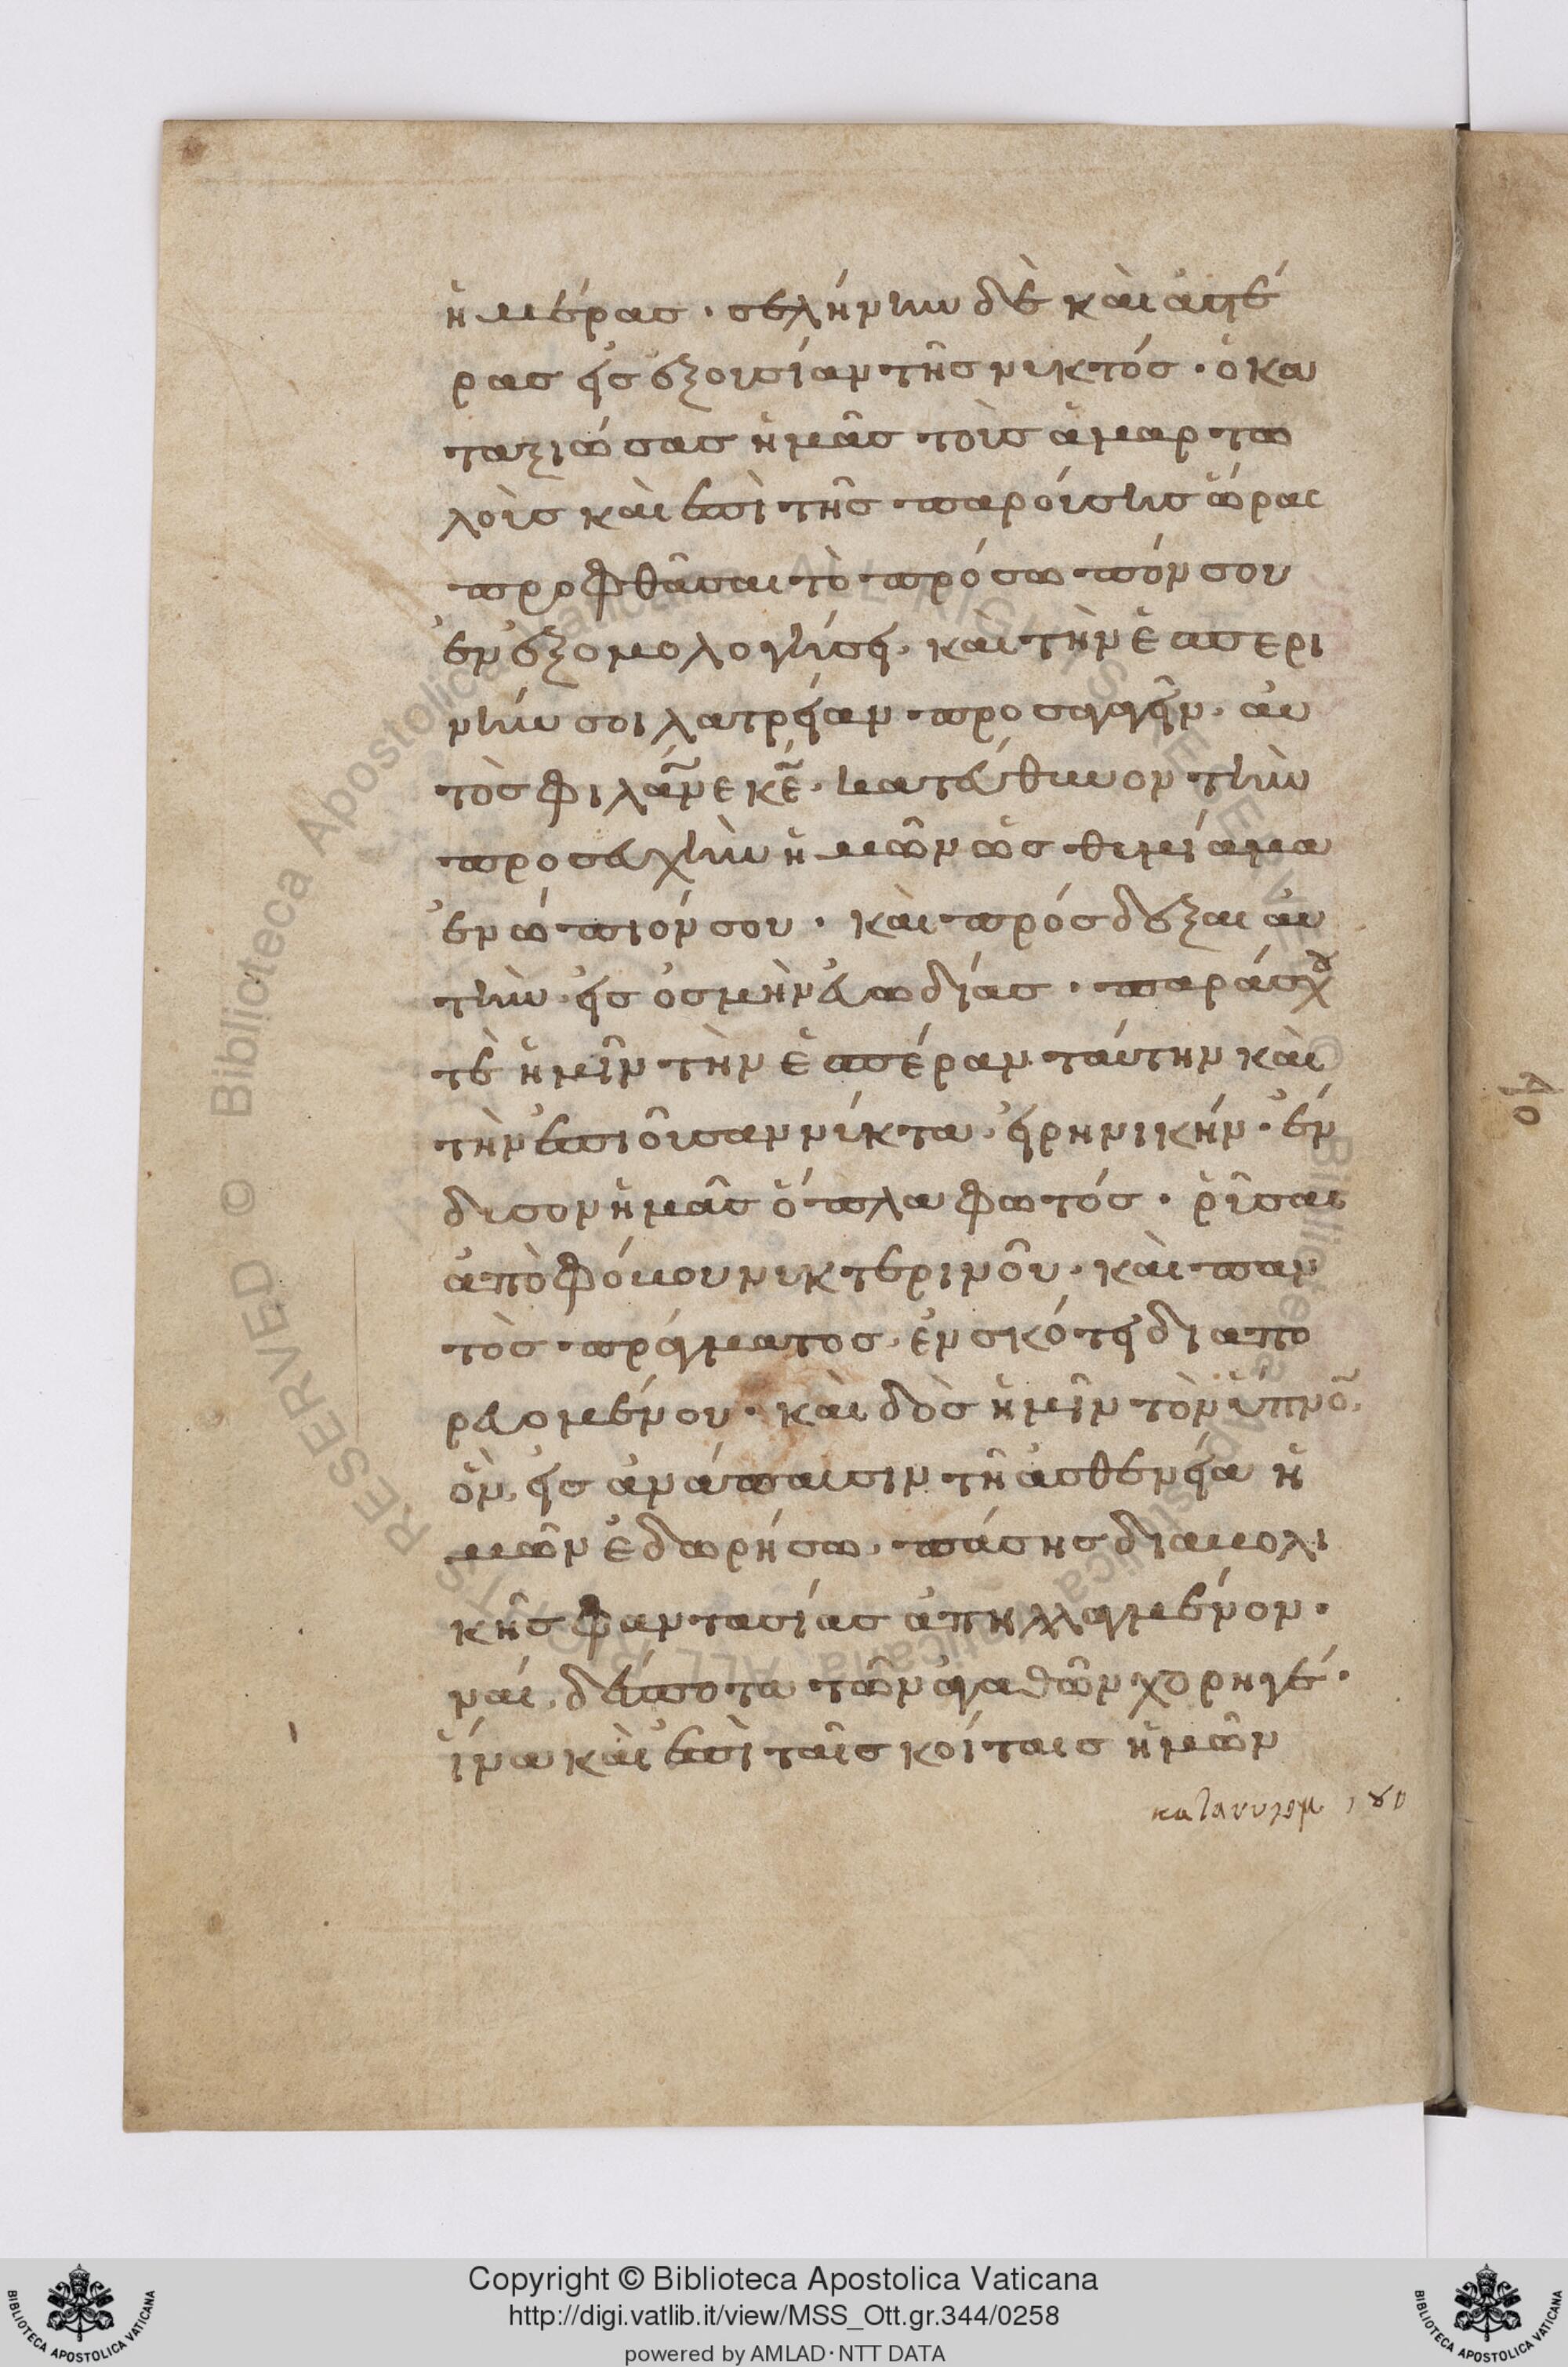 ἡμέρας · σελήνην δὲ καὶ ἀστέ
ρας εἰς ἐξουσίαν τῆς νυκτός · ὁ κα
ταξιώσας ἡμᾶς τοὺς ἁμαρτω
λοὺς καὶ ἐπὶ τῆς παρούσης ὥρας
προφθᾶσαι τὸ πρόσωπόν σου
ἐν ἐξομολογήσει, καὶ τὴν ἑσπερι
νήν σοι λατρείαν προσαγαγεῖν. αὐ
τὸς φιλάν̅ε κ̅ε̅. κατεύθυνον τὴν
προσευχὴν ἡμῶν ὡς θυμίαμα
ἐνώπιόν σου · καὶ πρόσδεξαι αὐ
τὴν εἰς ὀσμὴν εὐωδίας · παράσχου
τὲ ἡμῖν τὴν ἑσπέραν ταύτην καὶ
τὴν ἐπιοῦσαν νύκτα, εἰρηνικήν · ἔν
δυσον ἡμᾶς ὅπλα φωτός · ῥῦσαι
ἀπὸ φόβου νυκτερινοῦ · καὶ παν
τὸς πράγματος, ἐν σκότει διαπο
ρευομένου · καὶ δὸς ἡμῖν τὸν ὕπνο̅,
ὃν, εἰς ἀνάπαυσιν τῆ ἀσθενεία ἡ
μῶν ἐδωρήσω, πάσης διαβολι
κῆς φαντασίας ἀπηλλαγμένον ·
ναί, δέσποτα τῶν ἀγαθῶν χορηγέ ·
ἵνα καὶ ἐπὶ ταῖς κοίταις ἡμῶν
Copyright © Biblioteca Apostolica Vaticana
http://digi.vatlib.it/view/MSS_Ott.gr.344/0258
powered by AMLAD · NTT DATA
BIBLIOTECA APOSTOLICA VATICANA
BIBLIOTECA APOSTOLICA VATICANA